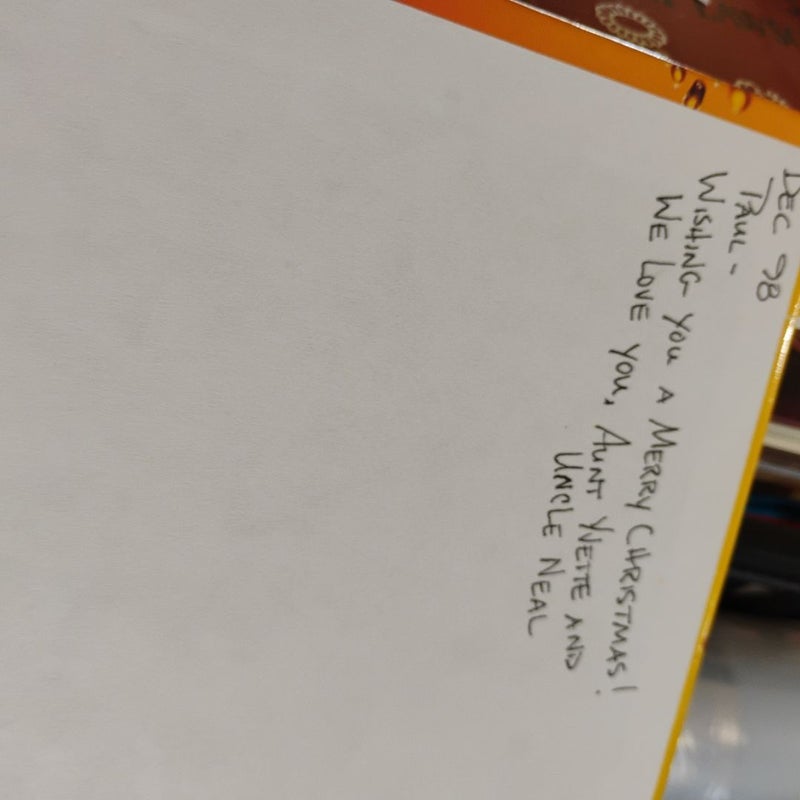 DEC 98
PAUL -
WISHING YOU A MERRY CHRISTMAS!
WE LOVE YOU, AUNT YVETTE AND
UNCLE NEAL